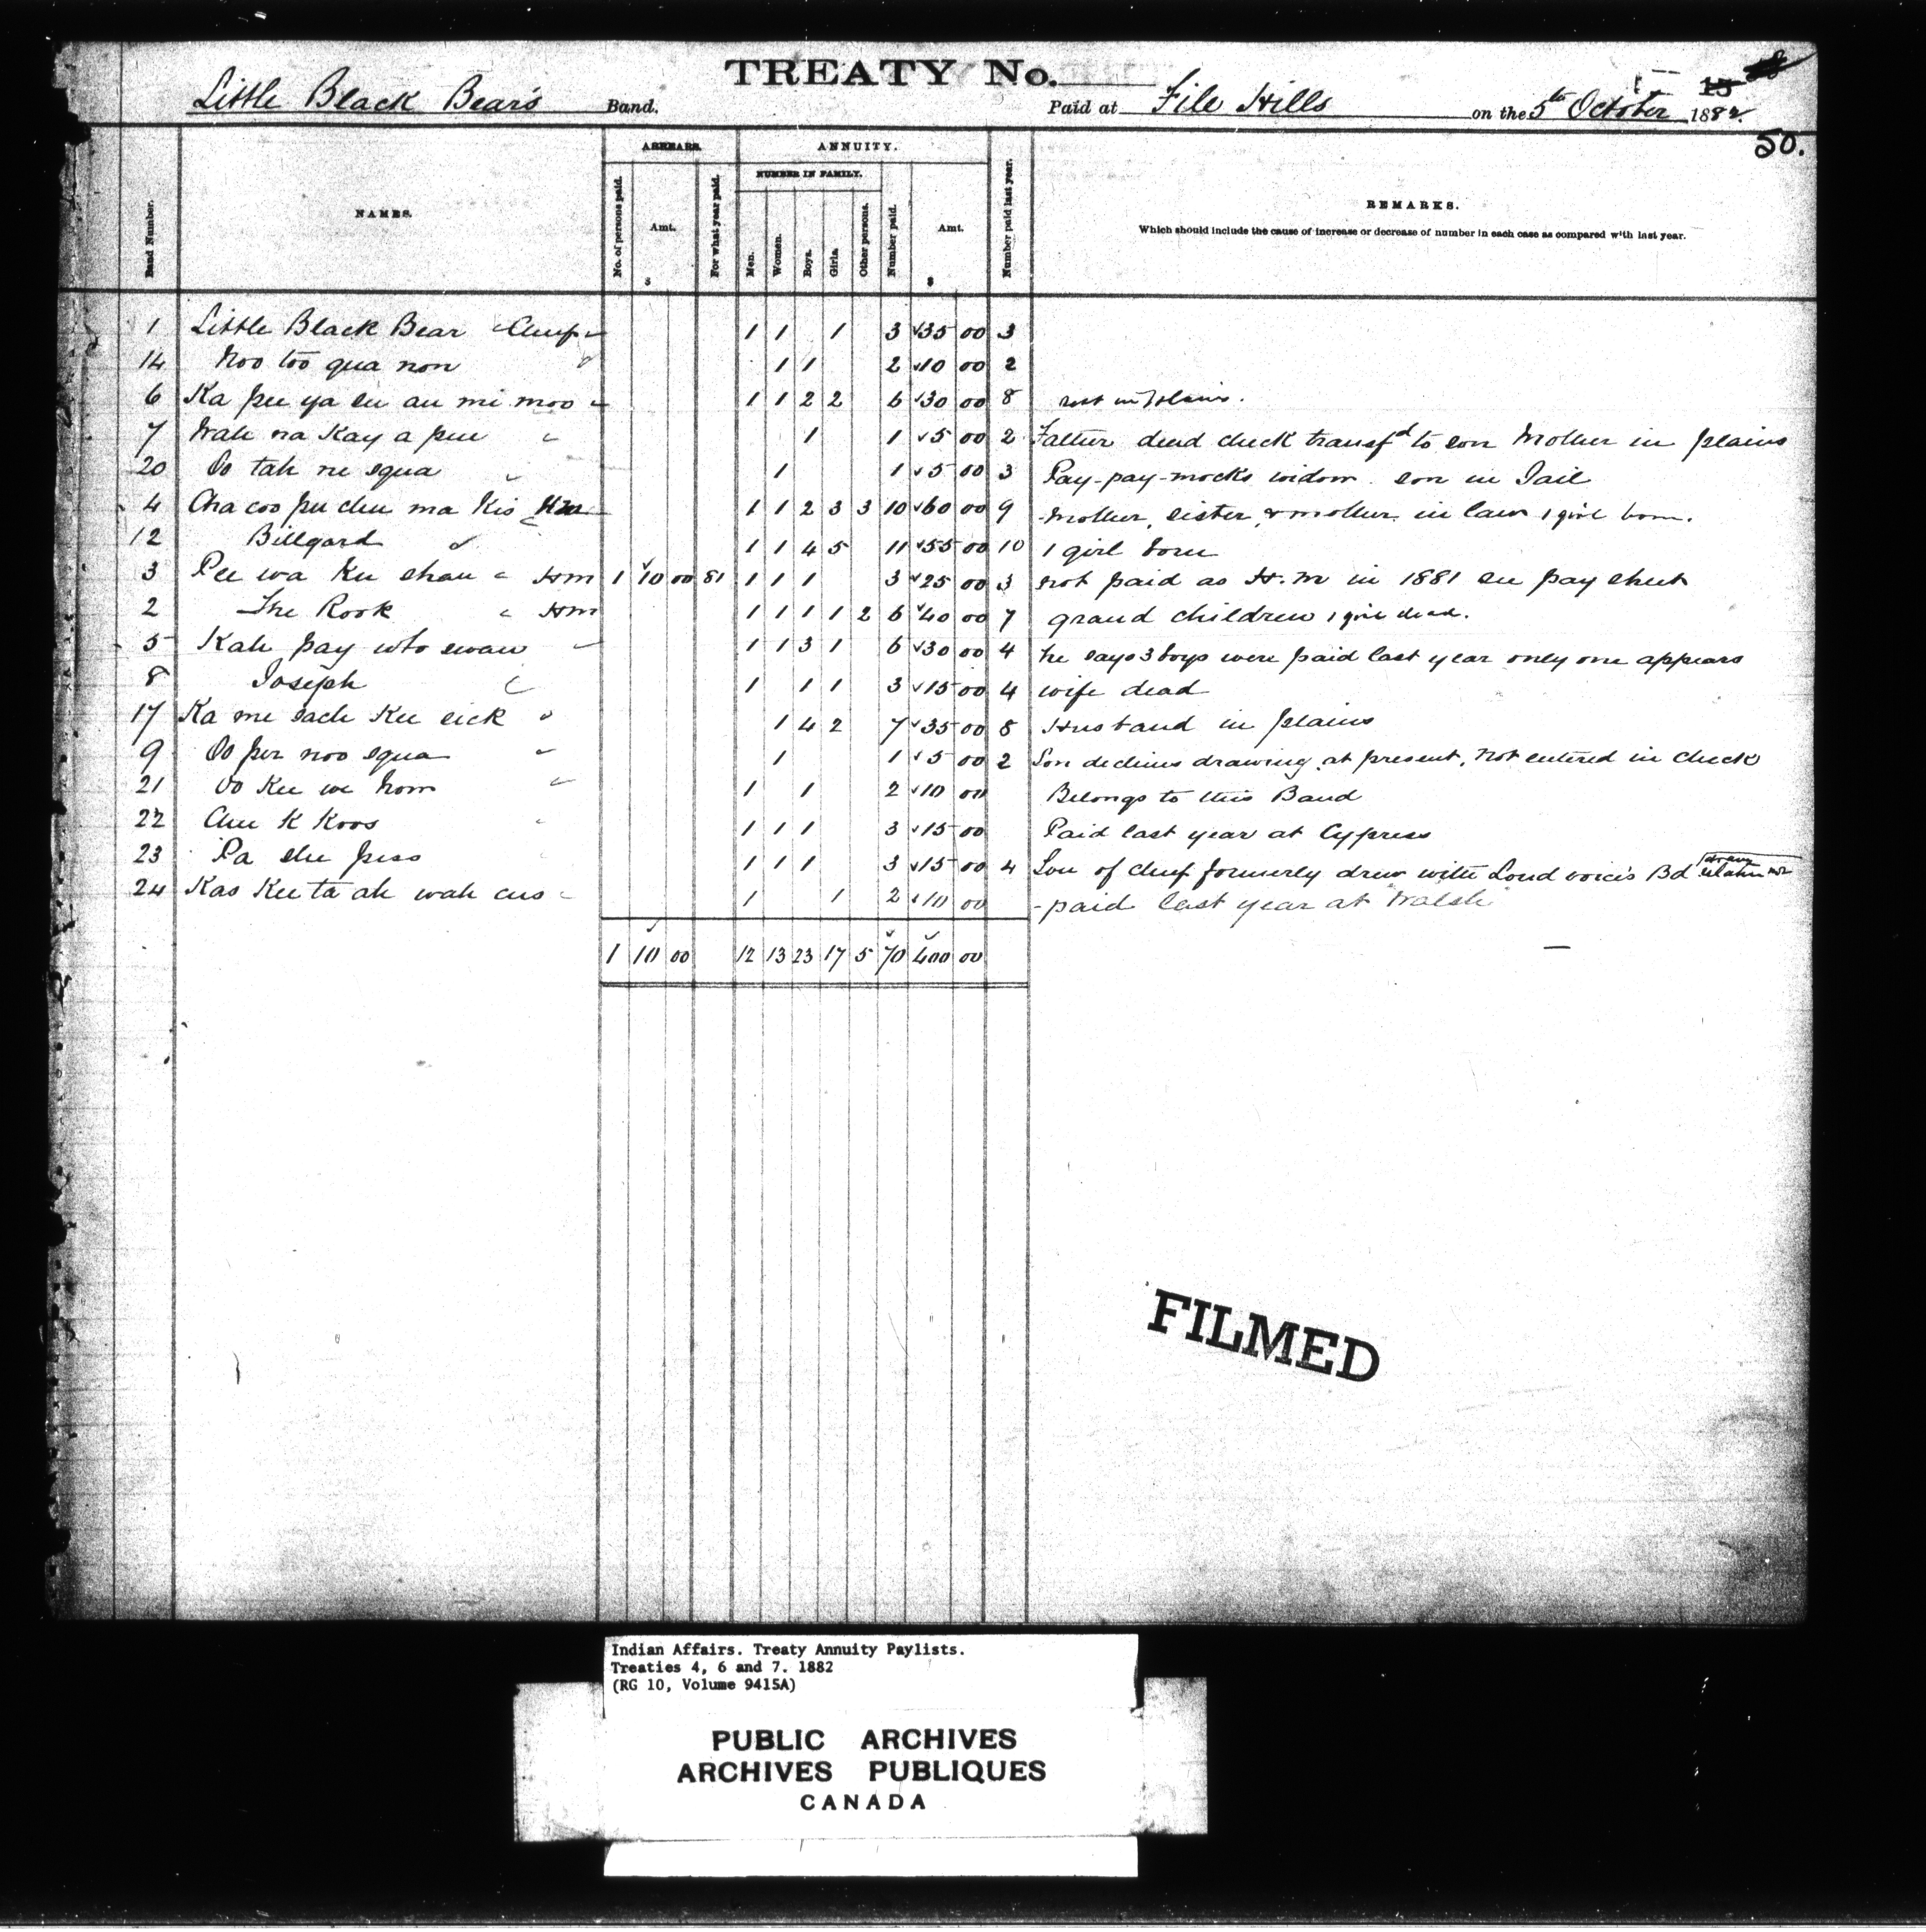 TREATY No.
Little Black Bear's Band. Paid at File Hills on the 5th October 1882.
15
50.
ARREARS. ANNUITY.
NUMBER IN FAMILY.
Band Number. NAMES. No. of persons paid. Amt. $ For what year paid. Men. Women. Boys. Girls. Other persons. Number paid. Amt. $ Number paid last year. REMARKS.
Which should include the cause of increase or decrease of number in each case as compared with last year.
1 Little Black Bear Chief 1 1 1 3 35 00 3
14 Noo too qua non 1 1 2 10 00 2
6 Ka pee ya su au mi moo 1 1 2 2 6 30 00 8 rest in Plains.
7 Wah na Kay a pew 1 1 5 00 2 Father dead check transfd to son Mother in plains
20 Oo tah ne squa 1 1 5 00 3 Pay-pay-mocks widow. son in Jail
4 Cha coo pu chu ma Kis Hm 1 1 2 3 3 10 60 00 9 Mother, sister & mother in law 1 girl born.
12 Billgard 1 1 4 5 11 55 00 10 1 girl born
3 Pee wa Ku shau Hm 1 10 00 81 1 1 1 3 25 00 3 not paid as H.M in 1881 see pay sheet
2 The Rook Hm 1 1 1 1 2 6 40 00 7 grand children 1 girl dead.
5 Kah pay who swau 1 1 3 1 6 30 00 4 he says 3 boys were paid last year only one appears
8 Joseph 1 1 1 3 15 00 4 wife dead
17 Ka me sach Kee sick 1 4 2 7 35 00 8 Husband in plains
9 Oo per noo squa 1 1 5 00 2 Son declines drawing at present, not entered in check
21 Oo Kee we hom 1 1 2 10 00 Belongs to this Band
22 Chee K Koos 1 1 1 3 15 00 Paid last year at Cypress
23 Pa she piss 1 1 1 3 15 00 4 Son of chief formerly drew with Loud voice's Bd
24 Kas Kee ta ah wah cus 1 1 2 10 00 paid last year at Walsh
1 10 00 12 13 23 17 5 70 400 00
FILMED
Indian Affairs. Treaty Annuity Paylists.
Treaties 4, 6 and 7. 1882
(RG 10, Volume 9415A)
PUBLIC ARCHIVES
ARCHIVES PUBLIQUES
CANADA